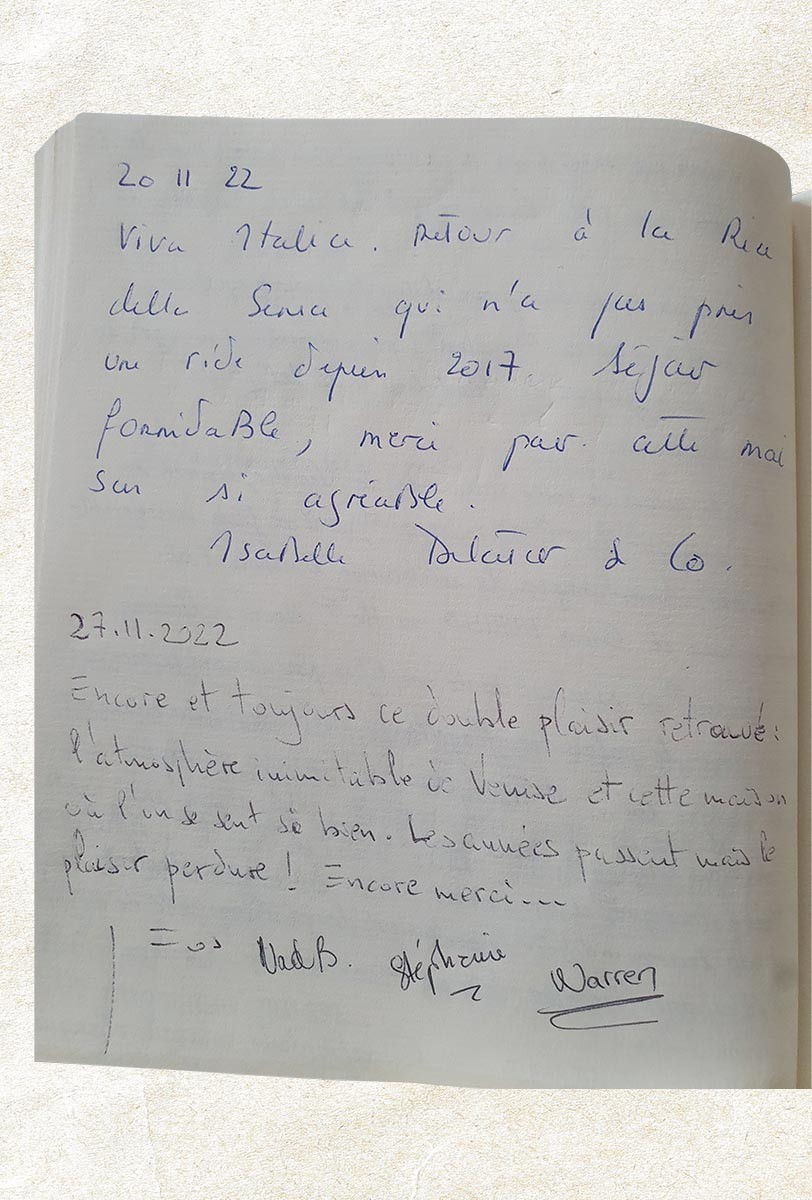 20 11 22
Viva Italia. Retour à la Ria
della Sensa qui n'a pas pris
une ride depuis 2017. Séjour
formidable, merci pour cette mai
son si agréable.
Isabelle & Co.
27.11.2022
Encore et toujours ce double plaisir retrouvé :
l'atmosphère inimitable de Venise et cette maison
où l'on se sent si bien. Les années passent mais le
plaisir perdure ! Encore merci...
Stéphanie
Warren